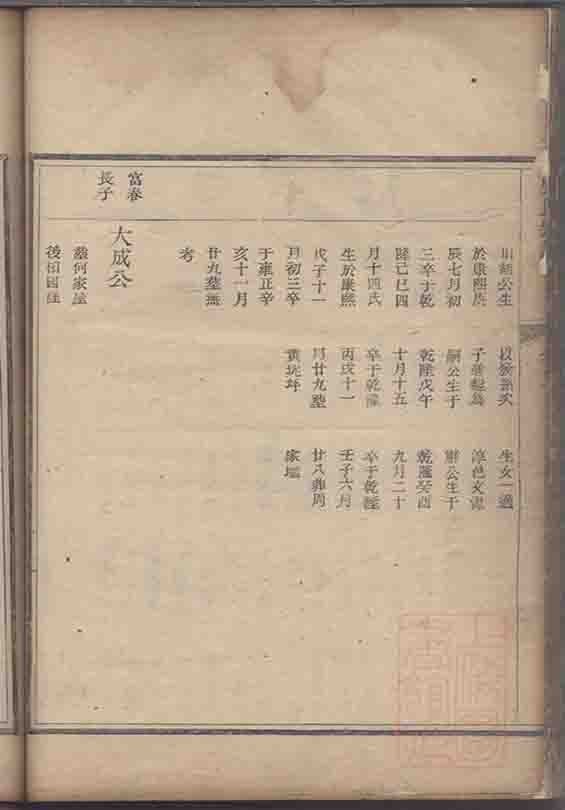 公生
於康熙庚
辰七月初
三卒于乾
隆己巳四
月十四氏
生於康熙
戊子十一
月初三卒
于雍正辛
亥十一月
廿九墓無
考
子
嗣公生于
乾隆戊午
十月十五
卒于乾隆
丙戌十一
月廿九墓
黃坑坪
生女一適
淳邑文
公生于
乾隆癸酉
九月二十
卒于乾隆
壬子六月
廿八葬周
家塢
富春
長子
大成公
墓何家
後